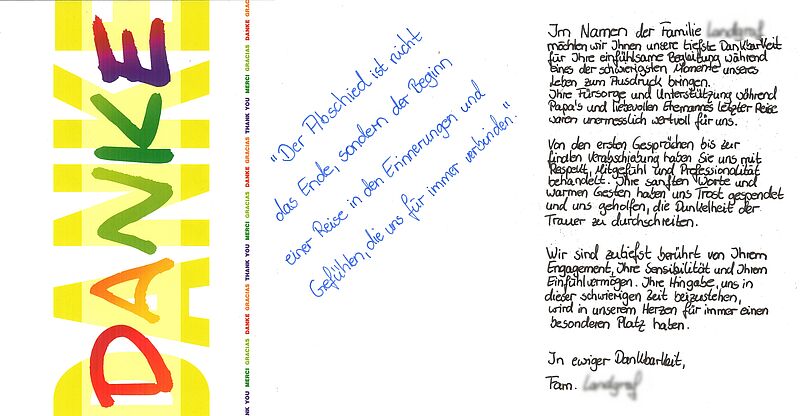 DANKE
DANKE
THANK YOU MERCI GRACIAS DANKE GRACIAS THANK YOU MERCI GRACIAS DANKE GRACIAS THANK YOU MERCI GRACIAS DANKE GRACIAS THANK YOU MERCI GRACIAS DANKE
"Der Abschied ist nicht
das Ende, sondern der Beginn
einer Reise in den Erinnerungen und
Gefühlen, die uns für immer verbinden."
Im Namen der Familie
möchten wir Ihnen unsere tiefste Dankbarkeit
für Ihre einfühlsame Begleitung während
eines der schwierigsten Momente unseres
Leben zum Ausdruck bringen.
Ihre Fürsorge und Unterstützung während
Papa's und liebevollen Ehemannes letzter Reise
waren unermesslich wertvoll für uns.
Von den ersten Gesprächen bis zur
finalen Verabschiedung haben Sie uns mit
Respekt, Mitgefühl und Professionalität
behandelt. Ihre sanften Worte und
warmen Gesten haben uns Trost gespendet
und uns geholfen, die Dunkelheit der
Trauer zu durchschreiten.
Wir sind zutiefst berührt von Ihrem
Engagement, Ihre Sensibilität und Ihrem
Einfühlvermögen. Ihre Hingabe, uns in
dieser schwierigen Zeit beizustehen,
wird in unserem Herzen für immer einen
besonderen Platz haben.
In ewiger Dankbarkeit,
Fam.